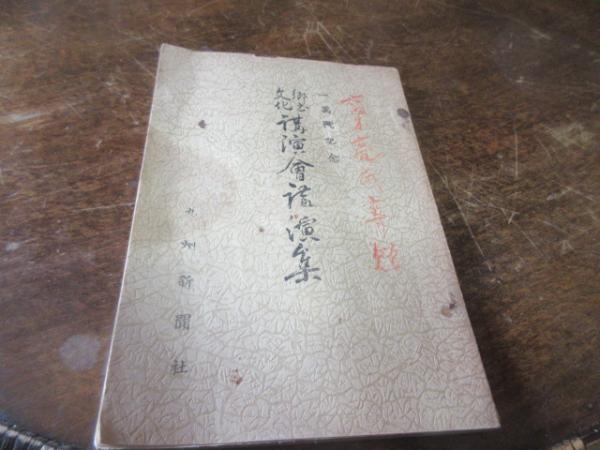 一萬號記念
郷土
文化
講演會講演集
九州新聞社